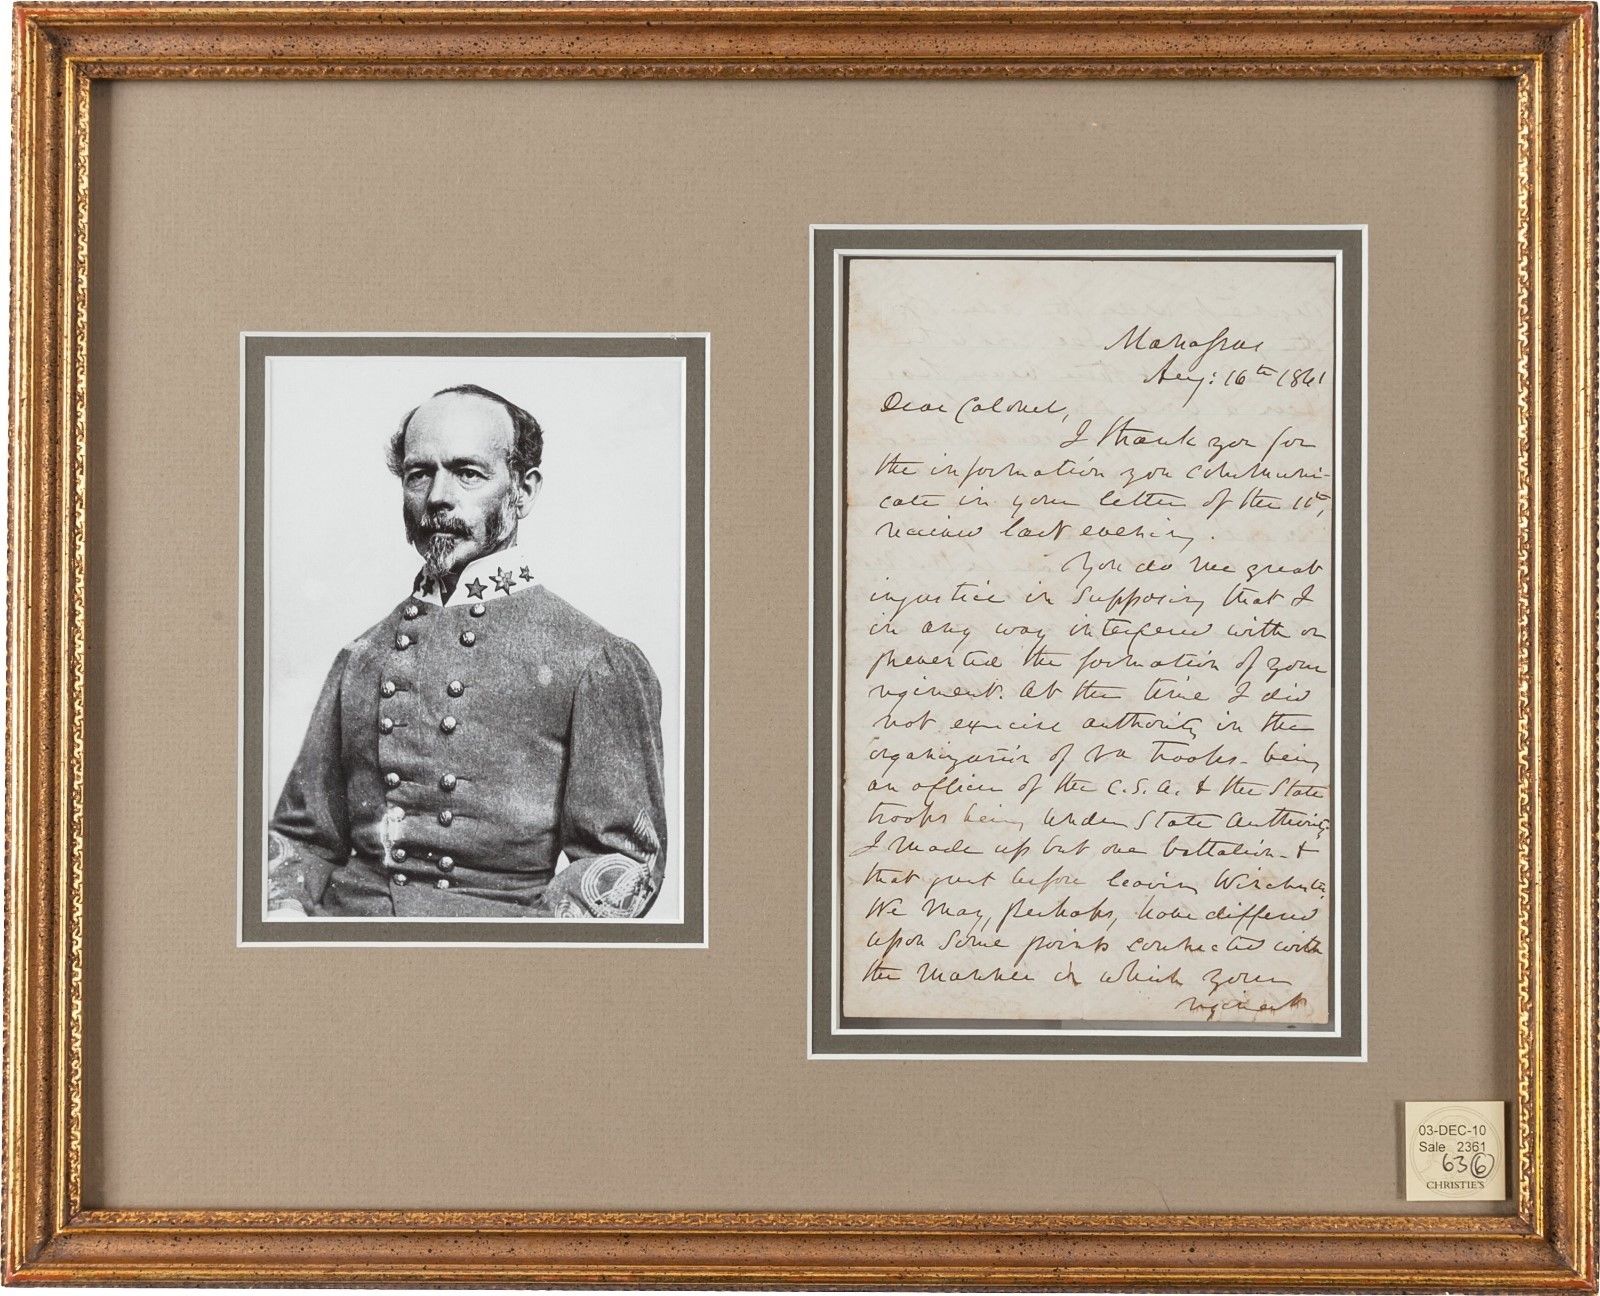 Manassas
Aug: 16th 1861
Dear Colonel,
I thank you for
the information you communi-
cate in your letter of the 11th,
received last evening.
You do me great
injustice in supposing that I
in any way interfered with or
prevented the formation of your
regiment. At the time I did
not exercise authority in the
organization of Va troops - being
an officer of the C.S.A. & the State
troops being under State authority.
I made up but one battalion - &
that just before leaving Winchester.
We may, perhaps, have differed
upon some points connected with
the manner in which your
regiment
03-DEC-10
Sale 2361
63 6
CHRISTIE'S